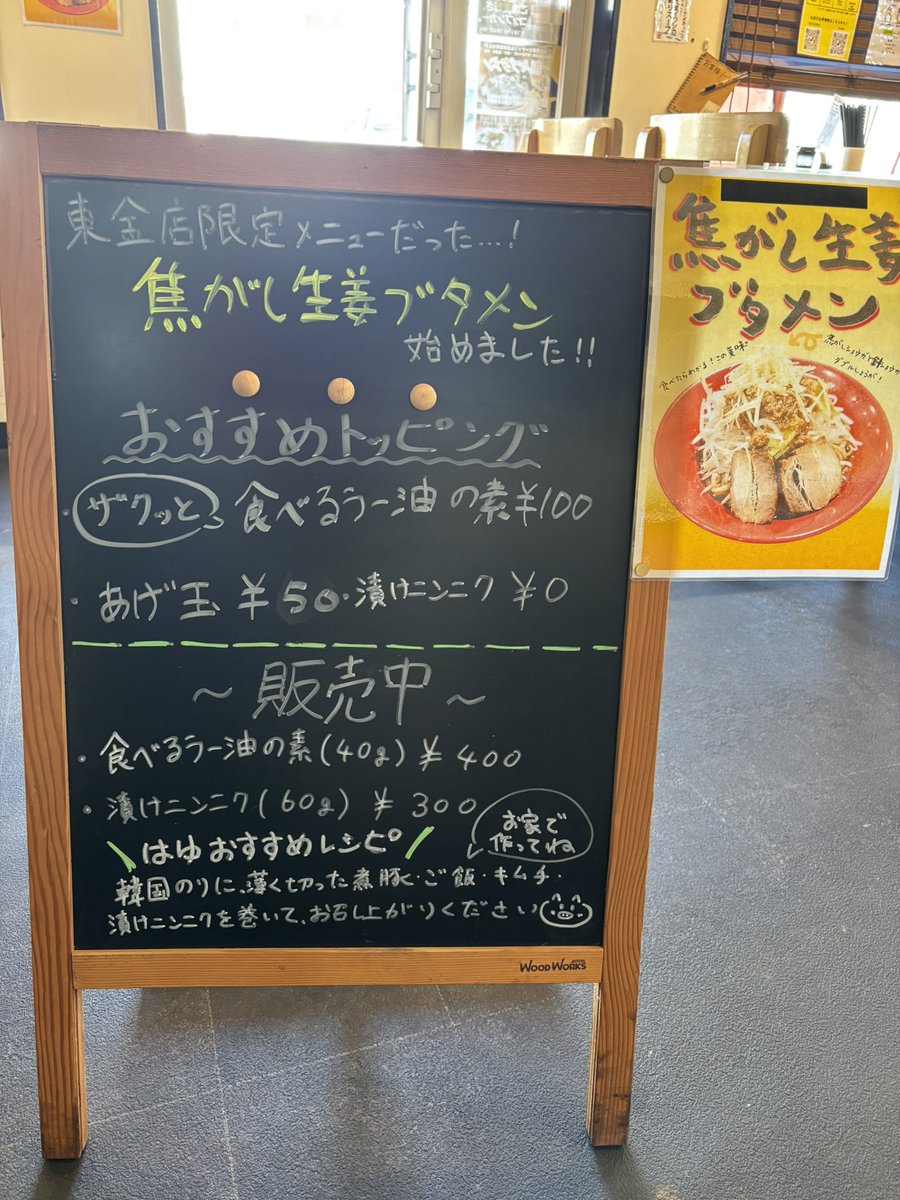 東金店限定メニューだった…!
焦がし生姜ブタメン
始めました!!
おすすめトッピング
・ザクッと 食べるラー油の素 ¥100
・あげ玉 ¥50・漬けニンニク ¥0
～販売中～
・食べるラー油の素(40g) ¥400
・漬けニンニク(60g) ¥300
お家で
作ってね
\はゆおすすめレシピ/
韓国のりに、薄く切った煮豚・ご飯・キムチ・
漬けニンニクを巻いて、お召し上がりください
WOOD WORKS
焦がし生姜
ブタメン
食べたらわかる!この美味
ダブルしょうが!